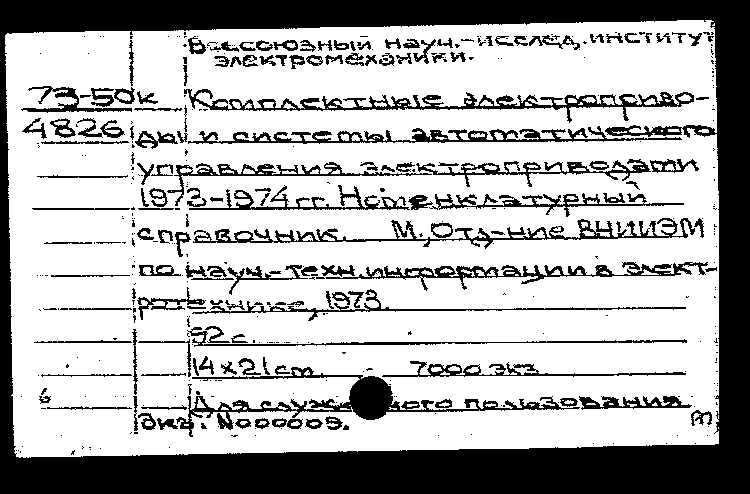 Всесоюзный науч.-исслед. институт
электромеханики.
73-50к Комплектные электроприво-
4826 ды и системы автоматического
управления электроприводами
1973-1974 гг. Номенклатурный
справочник. М., Отд-ние ВНИИЭМ
по науч.-техн. информации в элект-
ротехнике, 1973.
92 с.
14 x 21 cm. 7000 экз.
6 Для служ ного пользования
Экз. N000009.